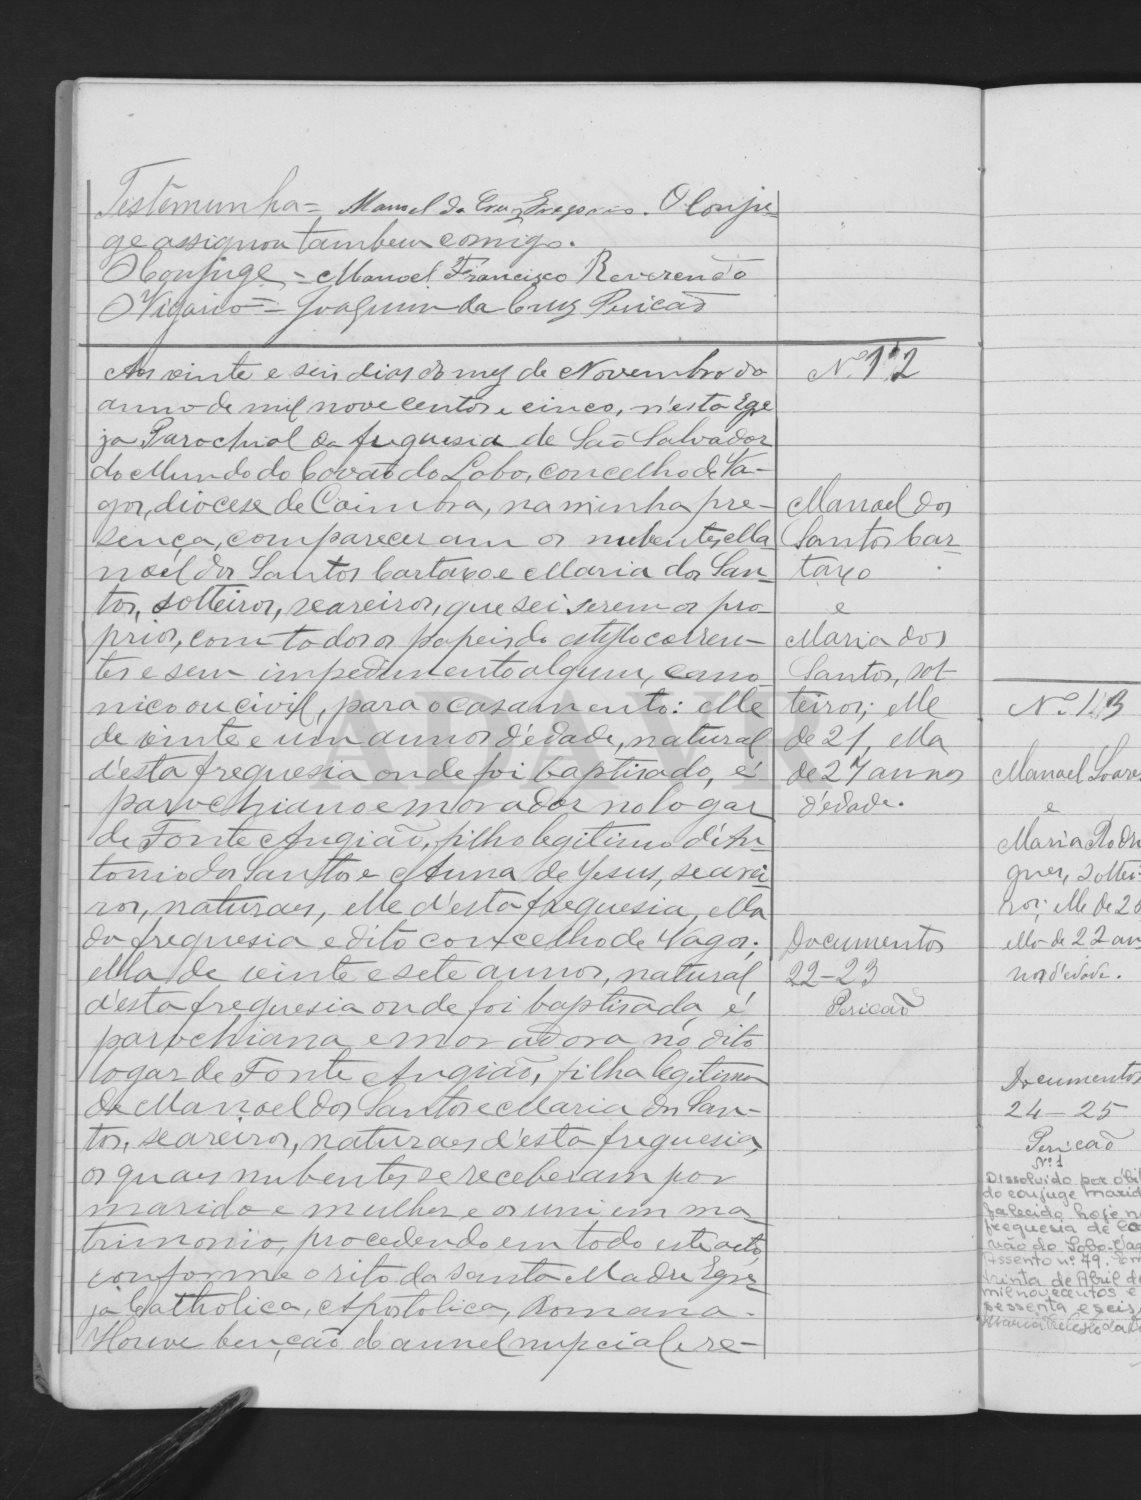 Testemunha = Manoel da Cruz Gregorio. O conju-
ge assignou tambem comigo.
O Conjuge = Manoel Francisco Reverendo
O Vigario = Joaquim da Cruz Pericaõ
Aos vinte e seis dias do mez de Novembro do
anno de mil novecentos e cinco, n'esta Egre
ja Parochial da freguesia de Saõ Salvador
do Mundo do Covaõ do Lobo, concelho de Va-
gos, diocese de Coimbra, na minha pre-
sença, compareceram os nubentes, Ma
noel dos Santos Cartaxo e Maria dos San-
tos, solteiros, seareiros, que sei serem os pro-
prios, com todos os papeis do estylo corren-
tes e sem impedimento algum, cano-
nico ou civil, para o casamento: elle
de vinte e um annos d'edade, natural
d'esta freguesia onde foi baptisado, é
parochiano e morador no logar
de Fonte Angiaõ, filho legitimo d'An-
tonio dos Santos e Anna de Jesus, searei-
ros, naturaes, elle d'esta freguesia, ella
da freguesia e dito concelho de Vagos;
ella de vinte e sete annos, natural
d'esta freguesia onde foi baptisada, é
parochiana e moradora no dito
logar de Fonte Angiaõ, filha legitima
de Manoel dos Santos e Maria dos San-
tos, seareiros, naturaes d'esta freguesia,
os quaes nubentes se receberam por
marido e mulher e os uni em ma-
trimonio, procedendo em todo este acto
conforme o rito da Santa Madre Egre-
ja Catholica, Apostolica, Romana.
Houve bençaõ do annel nupcial, e re-
Nº 12
Manoel dos
Santos Car-
taxo
e
Maria dos
Santos, sol-
teiros; elle
de 21, ella
de 27 annos
d'edade.
Documentos
22-23
Pericaõ
Nº 13
Manoel Soares
e
Maria Rodri
gues, soltei-
ros; elle de 20
ella de 22 an
nos d'edade.
Documentos
24-25
Pericaõ
Nº 1
Dissolvido por óbi
do conjuge marid
falecido hoje n
freguesia de Co
vão do Lobo-Vag
Assento nº 79. Em
trinta de Abril de
mil novecentos e
sessenta e seis,